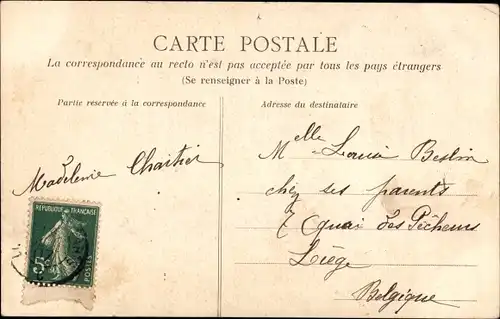 CARTE POSTALE
La correspondance au recto n'est pas acceptée par tous les pays étrangers
(Se renseigner à la Poste)
Partie réservée à la correspondance
Adresse du destinataire
Madeleine Chartier
Melle Louise
chez ses parents
7 quai des Pêcheurs
Liège
Belgique
REPUBLIQUE FRANÇAISE
5c
POSTES